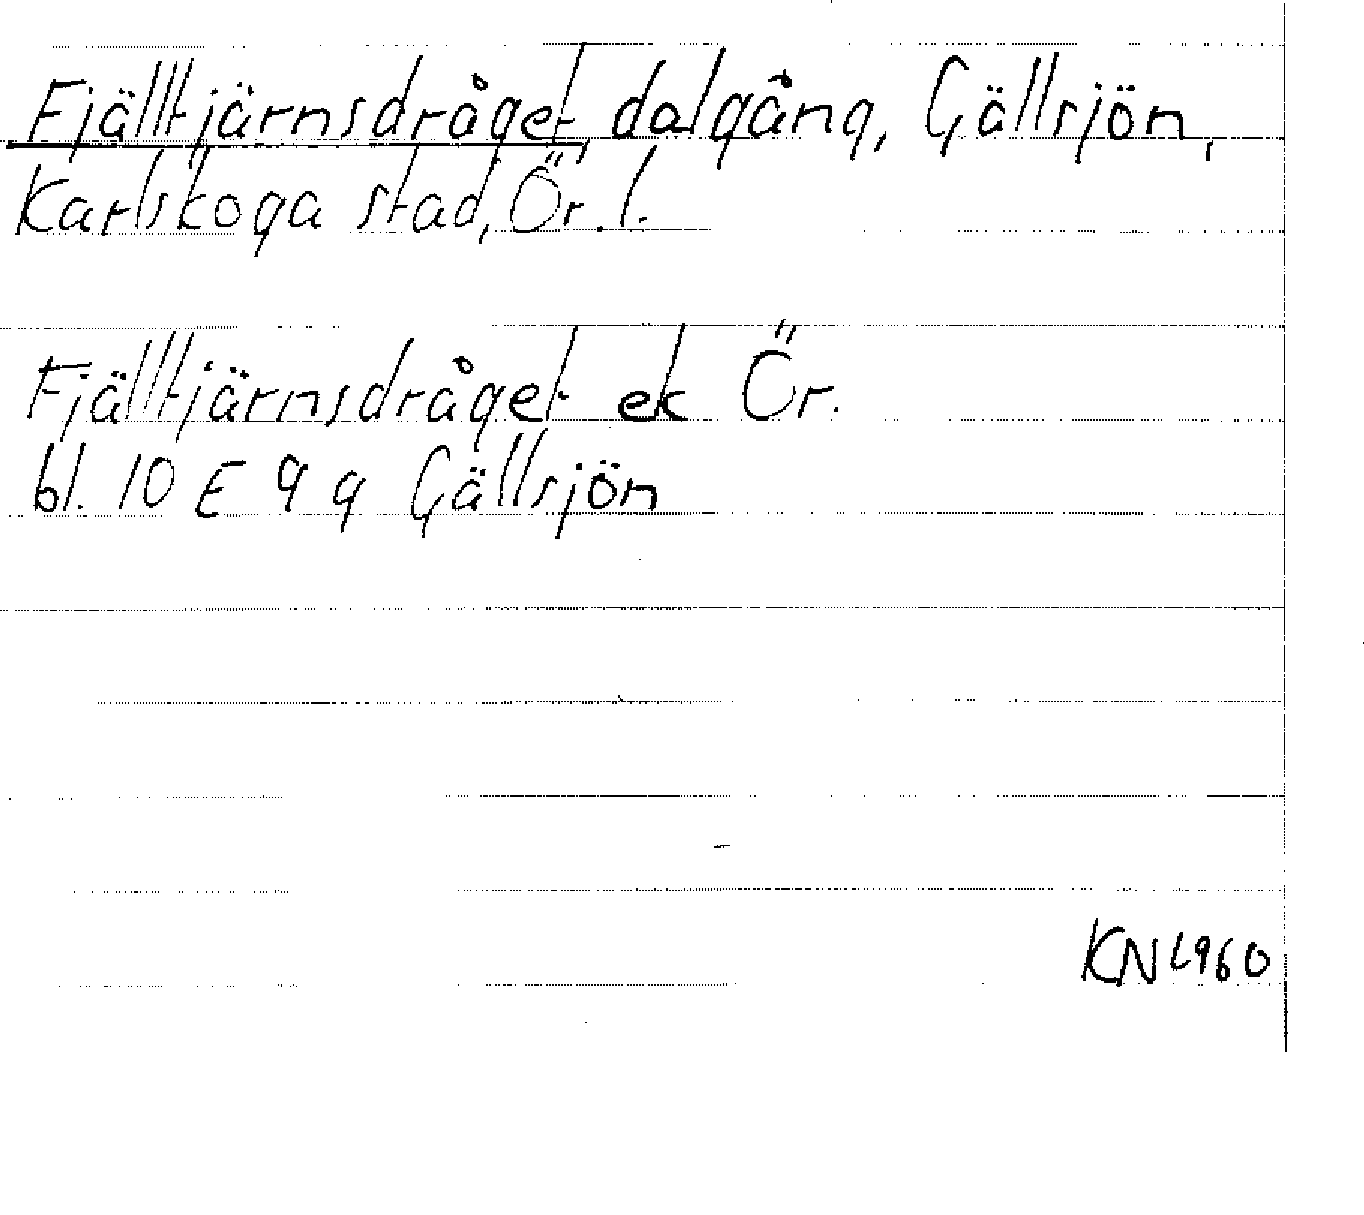 Fjälltjärnsdråget, dalgång, Gällsjön,
Karlskoga stad, Ör. l.
Fjälltjärnsdråget ek Ör.
bl. 10 E 9 g Gällsjön
KN 1960